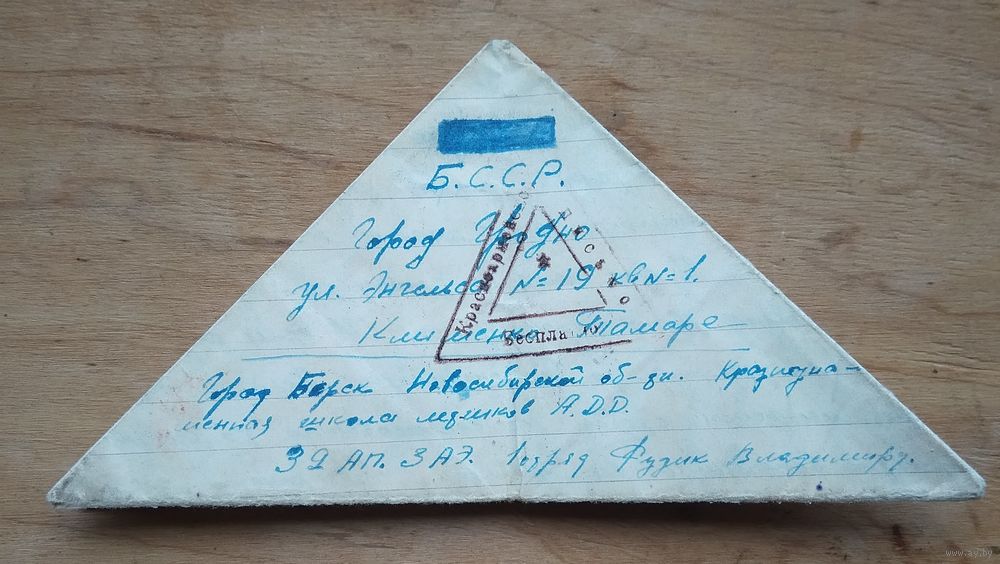 Б.С.С.Р.
Город Гродно
ул. Энгельса №19 кв №1.
Клименко Тамаре
Красноармейское
Письмо
Бесплатно
Город Бердск Новосибирской об-ди. Краснозна-
менная школа летчиков А.Д.Д.
3Q АП. 3 АЭ. 1 отряд Фузик Владимиру.
www.ay.by